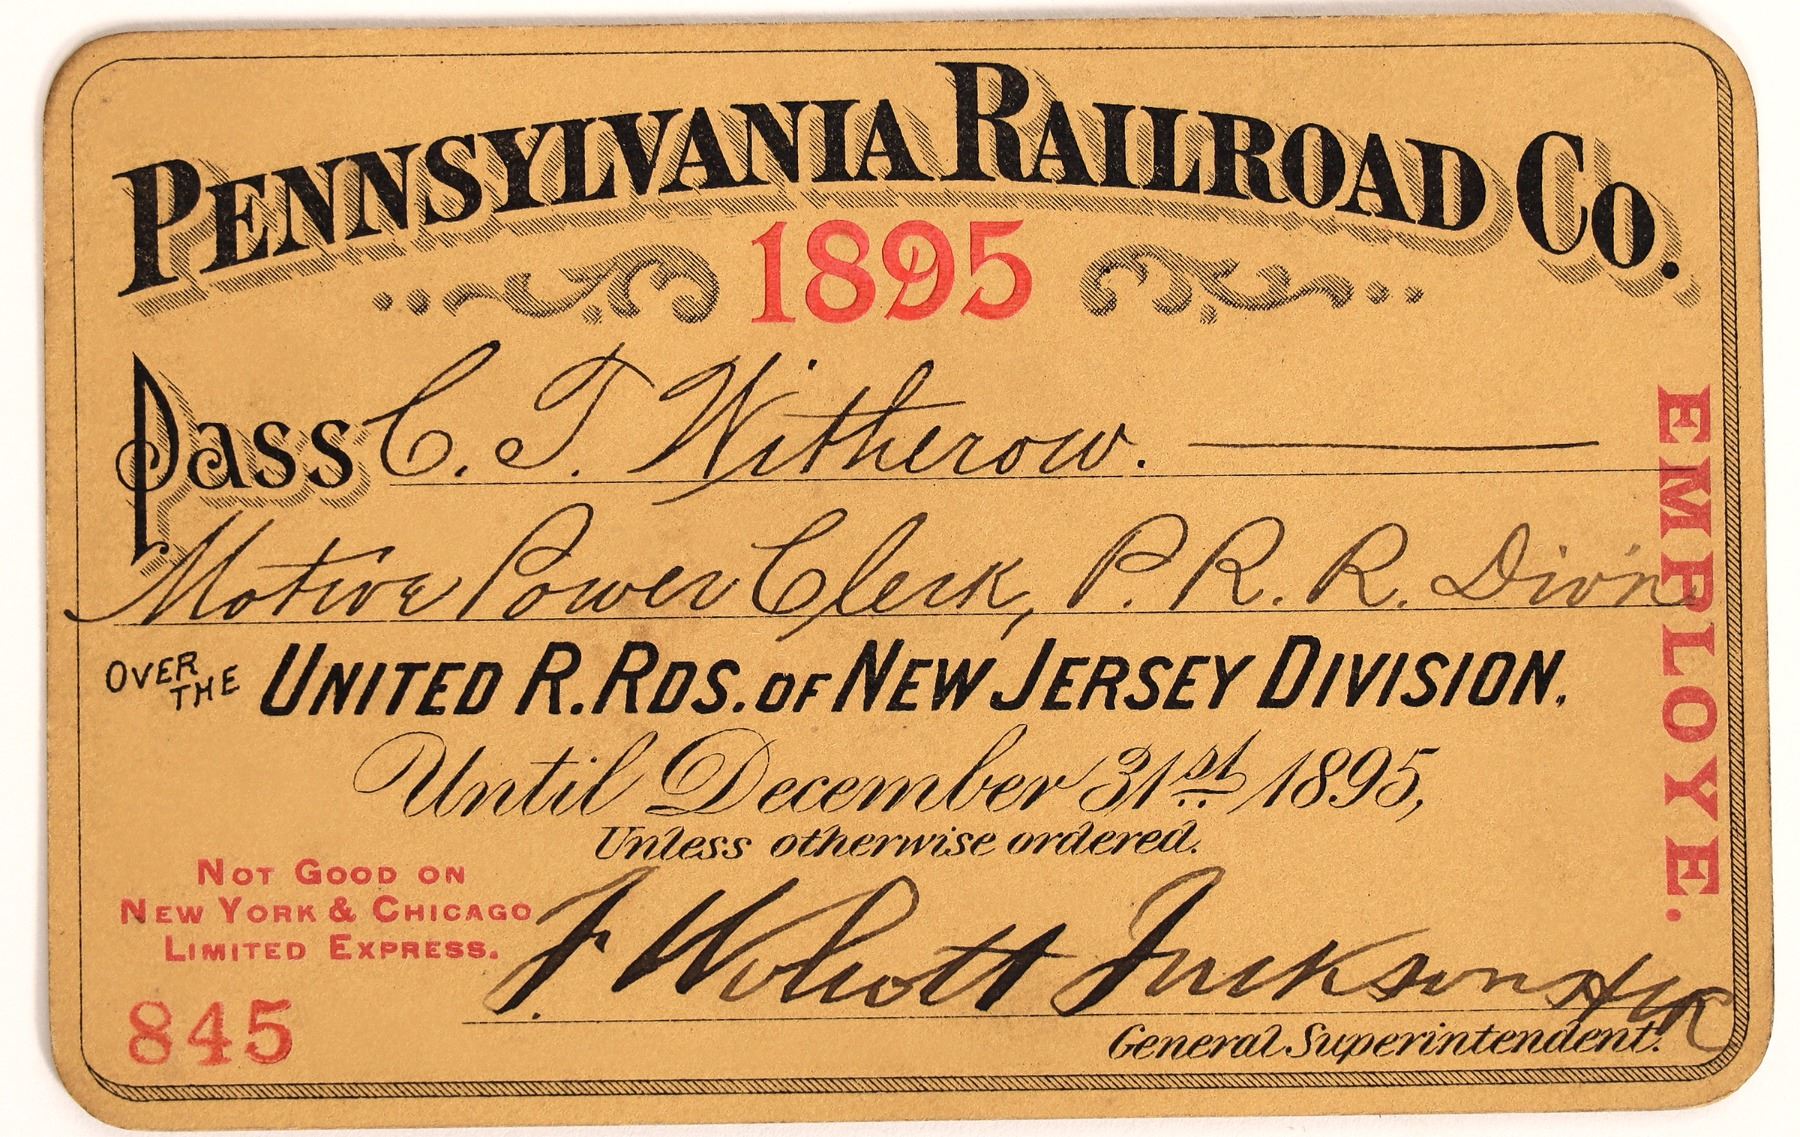 PENNSYLVANIA RAILROAD CO.
1895
Pass C. T. Witherow.
Motive Power Clerk, P. R. R. Div'n
OVER THE UNITED R. RDS. OF NEW JERSEY DIVISION.
Until December 31st 1895,
Unless otherwise ordered.
NOT GOOD ON
NEW YORK & CHICAGO
LIMITED EXPRESS.
F Wolcott Jackson
General Superintendent.
845
EMPLOYE.